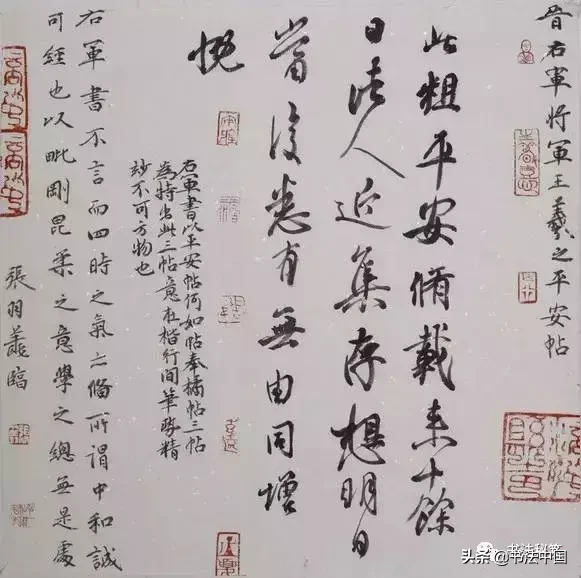 晋右軍将軍王羲之平安帖
此粗平安脩載来十餘
日諸人近集存想明日
當復悉有無由同增
慨
右軍書以平安帖何如帖奉橘帖三帖
為特出此三帖意在楷行間筆勢精
妙不可方物也
右軍書不言而四時之氣亦備所謂中和誠
可經也以毗剛毘柔之意學之總無是處
張羽翥臨
头条 @书法中国